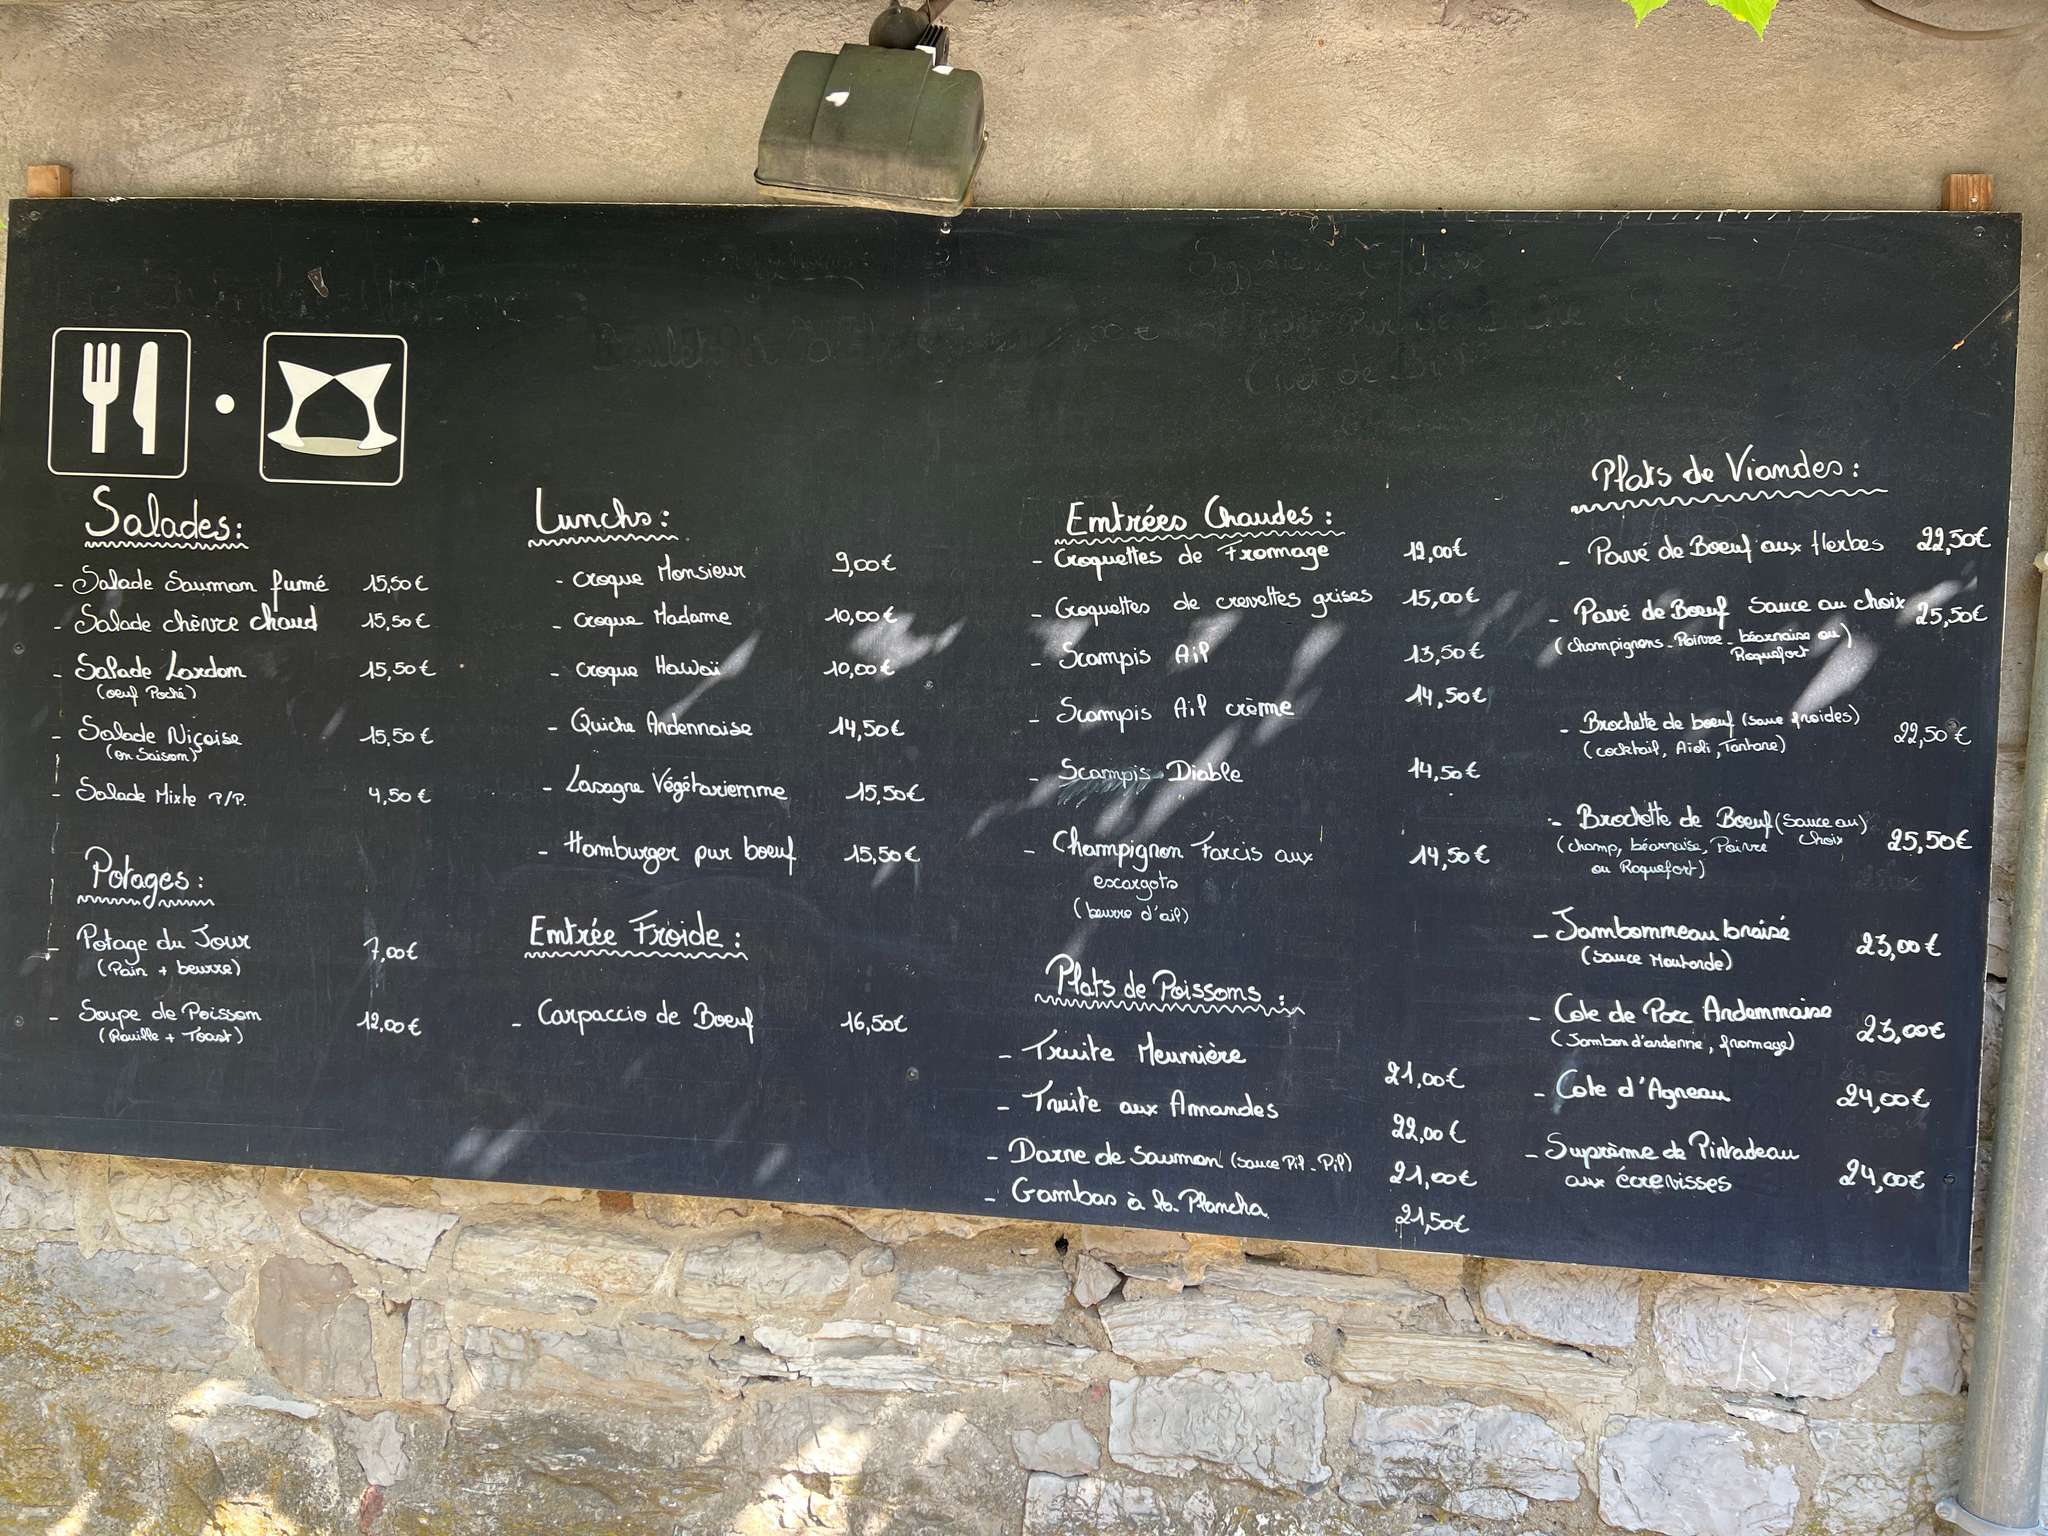 Salades:
- Salade Saumon fumé 15,50€
- Salade chèvre chaud 15,50€
- Salade Lardon 15,50€
(oeuf Poché)
- Salade Niçoise 15,50€
(en Saison)
- Salade Mixte P/P. 4,50€
Potages:
- Potage du Jour 7,00€
(Pain + beurre)
- Soupe de Poisson 12,00€
(Rouille + Toast)
Lunchs:
- Croque Monsieur 9,00€
- Croque Madame 10,00€
- Croque Hawaï 10,00€
- Quiche Ardennaise 14,50€
- Lasagne Végétarienne 15,50€
- Hamburger pur boeuf 15,50€
Entrée Froide:
- Carpaccio de Boeuf 16,50€
Entrées Chaudes:
- Croquettes de Fromage 12,00€
- Croquettes de crevettes grises 15,00€
- Scampis Ail 13,50€
- Scampis Ail crème 14,50€
- Scampis Diable 14,50€
- Champignon Farcis aux 14,50€
escargots
(beurre d'ail)
Plats de Poissons:
- Truite Meunière 21,00€
- Truite aux Amandes 22,00€
- Darne de Saumon (sauce Pil-Pil) 21,00€
- Gambas à la Plancha 21,50€
Plats de Viandes:
- Pavé de Boeuf aux Herbes 22,50€
- Pavé de Boeuf Sauce au choix 25,50€
(champignons - Poivre - béarnaise ou
Roquefort)
- Brochette de boeuf (sauce froides) 22,50€
(cocktail, Aioli, Tartare)
- Brochette de Boeuf (Sauce au choix) 25,50€
(champ, béarnaise, Poivre
ou Roquefort)
- Jambonneau braisé 23,00€
(Sauce Moutarde)
- Cote de Porc Ardennaise 23,00€
(Jambon d'ardenne, fromage)
- Cote d'Agneau 24,00€
- Suprème de Pintadeau
aux écrevisses 24,00€